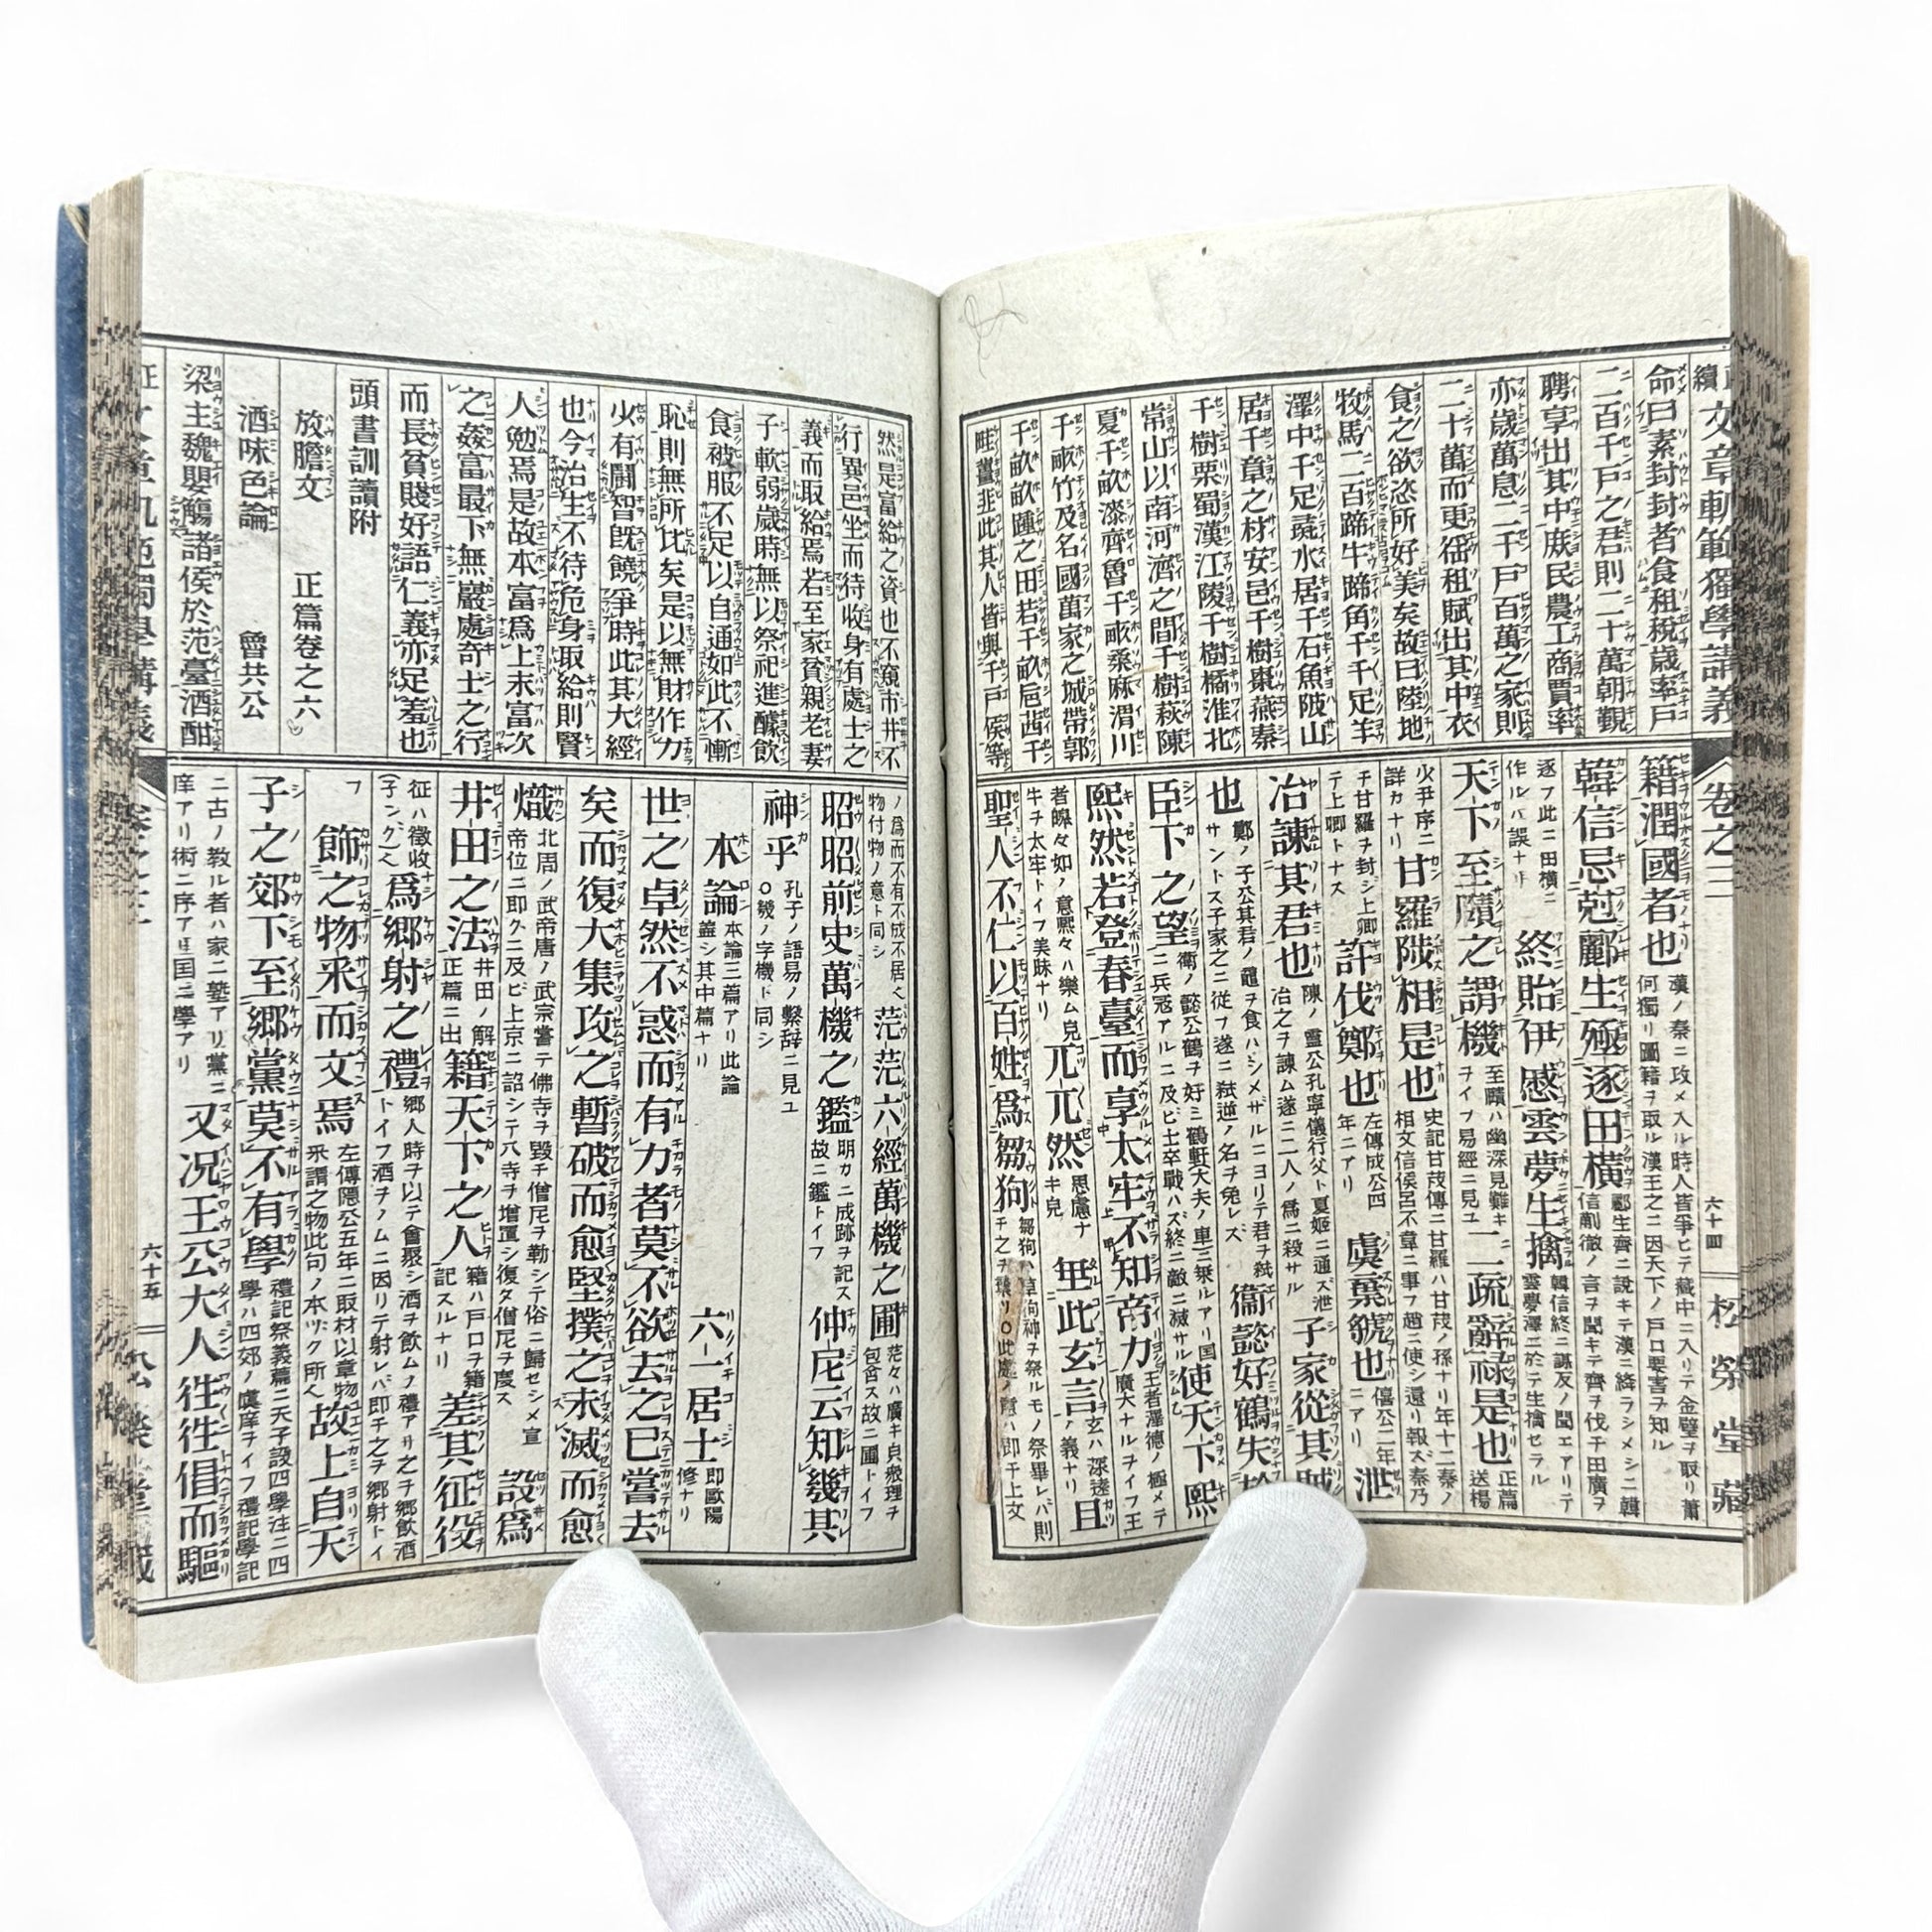 續文章軌範獨學講義
卷之三
六十四
松榮堂藏
命曰素封封者食租税歳率戸
二百千戸之君則二十萬朝覲
聘享出其中庶民農工商賈率
亦歳萬息二千戸百萬之家則
二十萬而更徭租賦出其中衣
食之欲恣所好美矣故曰陸地
牧馬二百蹄牛蹄角千千足羊
澤中千足彘水居千石魚陂山
居千章之材安邑千樹棗燕秦
千樹栗蜀漢江陵千樹橘淮北
常山以南河濟之間千樹萩陳
夏千畝漆齊魯千畝桑麻渭川
千畝竹及名國萬家之城帶郭
千畝畝鍾之田若千畝巵茜千
畦薑韭此其人皆與千戸侯等
籍潤國者也
漢ノ秦ニ攻メ入ル時人皆爭ヒテ藏中ニ入リテ金璧ヲ取リ蕭
何獨リ圖籍ヲ取ル漢王之ニ因天下ノ戸口要害ヲ知ル
韓信忌尅酈生殛逐田横
酈生齊ニ説キテ漢ニ降ラシメシニ韓
信蒯徹ノ言ヲ聞キテ齊ヲ伐チ田廣ヲ
逐フ此ニ田横ニ
作ルバ誤ナリ
終貽伊慼雲夢生擒
韓信終ニ謀反ノ聞エアリテ
雲夢澤ニ於テ生擒セラル
天下至賾之謂機
至賾ハ幽深見難キ
ヲイフ易經ニ見ユ
二疏辭禄是也
正篇
送楊
少尹序ニ
詳カナリ
甘羅陵相是也
史記甘茂傳ニ甘羅ハ甘茂ノ孫ナリ年十二秦ノ
相文信侯呂不韋ニ事フ趙ニ使シ還リ報ズ秦乃
チ甘羅ヲ封シ上卿
テ上卿トナス
許伐鄭也
左傳成公四
年ニアリ
虞棄虢也
僖公二年
ニアリ
泄
冶諫其君也
陳ノ靈公孔寧儀行父ト夏姬ニ通ズ泄
冶之ヲ諫ム遂ニ二人ノ爲ニ殺サル
子家從其賊
也
鄭ノ子公其君ノ黿ヲ食ハシメザルニヨリテ君ヲ弑
サントス子家之ニ從フ遂ニ弑逆ノ名ヲ免レズ
衞懿好鶴失於
臣下之望
衛ノ懿公鶴ヲ好ミ鶴軒大夫ノ車ニ乗ルアリ国
ニ兵冦アルニ及ビ士卒戰ハズ終ニ敵ニ滅サル
使天下熙
熙然若登春臺而享太牢不知帝力
王者澤徳ノ極メテ
廣大ナルヲイフ王
者皥々如ノ意熙々ハ樂ム皃
牛ヲ太牢トイフ美味ナリ
兀兀然
思慮ナ
キ皃
無此玄言
玄ハ深遠
ノ義ナリ
且
聖人不仁以百姓爲芻狗
芻狗ハ草狗神ヲ祭ルモノ祭畢レバ則
然是富給之資也不窺市井不
行異邑坐而待收身有處士之
義而取給焉若至家貧親老妻
子軟弱歳時無以祭祀進醵飲
食被服不足以自通如此不慚
恥則無所比矣是以無財作力
少有鬪智既饒爭時此其大經
也今治生不待危身取給則賢
人勉焉是故本富爲上末富次
之姦富最下無巖處奇士之行
而長貧賤好語仁義亦足羞也
頭書訓讀附
放膽文　正篇卷之六
酒味色論　魯共公
梁主魏嬰觴諸侯於范臺酒酣
ノ爲而不有不成不居ヘ
物付物ノ意ト同シ
茫茫六經萬機之圃
茫々ハ廣キ皃衆理ヲ
包含ス故ニ圃トイフ
昭昭前史萬機之鑑
明カニ成跡ヲ記ス
故ニ鑑トイフ
仲尼云知幾其
神乎
孔子ノ語易ノ繫辞ニ見ユ
○幾ノ字機ト同シ
本論
本論三篇アリ此論
蓋シ其中篇ナリ
六一居士
即歐陽
修ナリ
世之卓然不惑而有力者莫不欲去之已嘗去
矣而復大集攻之暫破而愈堅撲之未滅而愈
熾
北周ノ武帝唐ノ武宗嘗テ佛寺ヲ毀チ僧尼ヲ勒シテ俗ニ歸セシメ宣
帝位ニ即クニ及ビ上京ニ詔シテ八寺ヲ増置シ復タ僧尼ヲ度ス
設爲
井田之法
井田ノ解
正篇ニ出
籍天下之人
籍ハ戸口ヲ籍
記スルナリ
差其征役
征ハ徴收ナシ
爲鄕射之禮
鄕人時ヲ以テ會聚シ酒ヲ飲ムノ禮アリ之ヲ鄕飲酒
トイフ酒ヲノムニ因リテ射レバ即チ之ヲ鄕射トイ
フ
飾之物采而文焉
左傳隱公五年ニ取材以章物
采謂之物此句ノ本ヅク所ヘ
故上自天
子之郊下至鄕黨莫不有學
禮記祭義篇ニ天子設四學注ニ四
學ハ四郊ノ虞庠ヲイフ禮記學記
ニ古ノ教ル者ハ家ニ塾アリ黨ニ
庠アリ術ニ序アリ国ニ學アリ
又况王公大人徃徃倡而驅
六十五